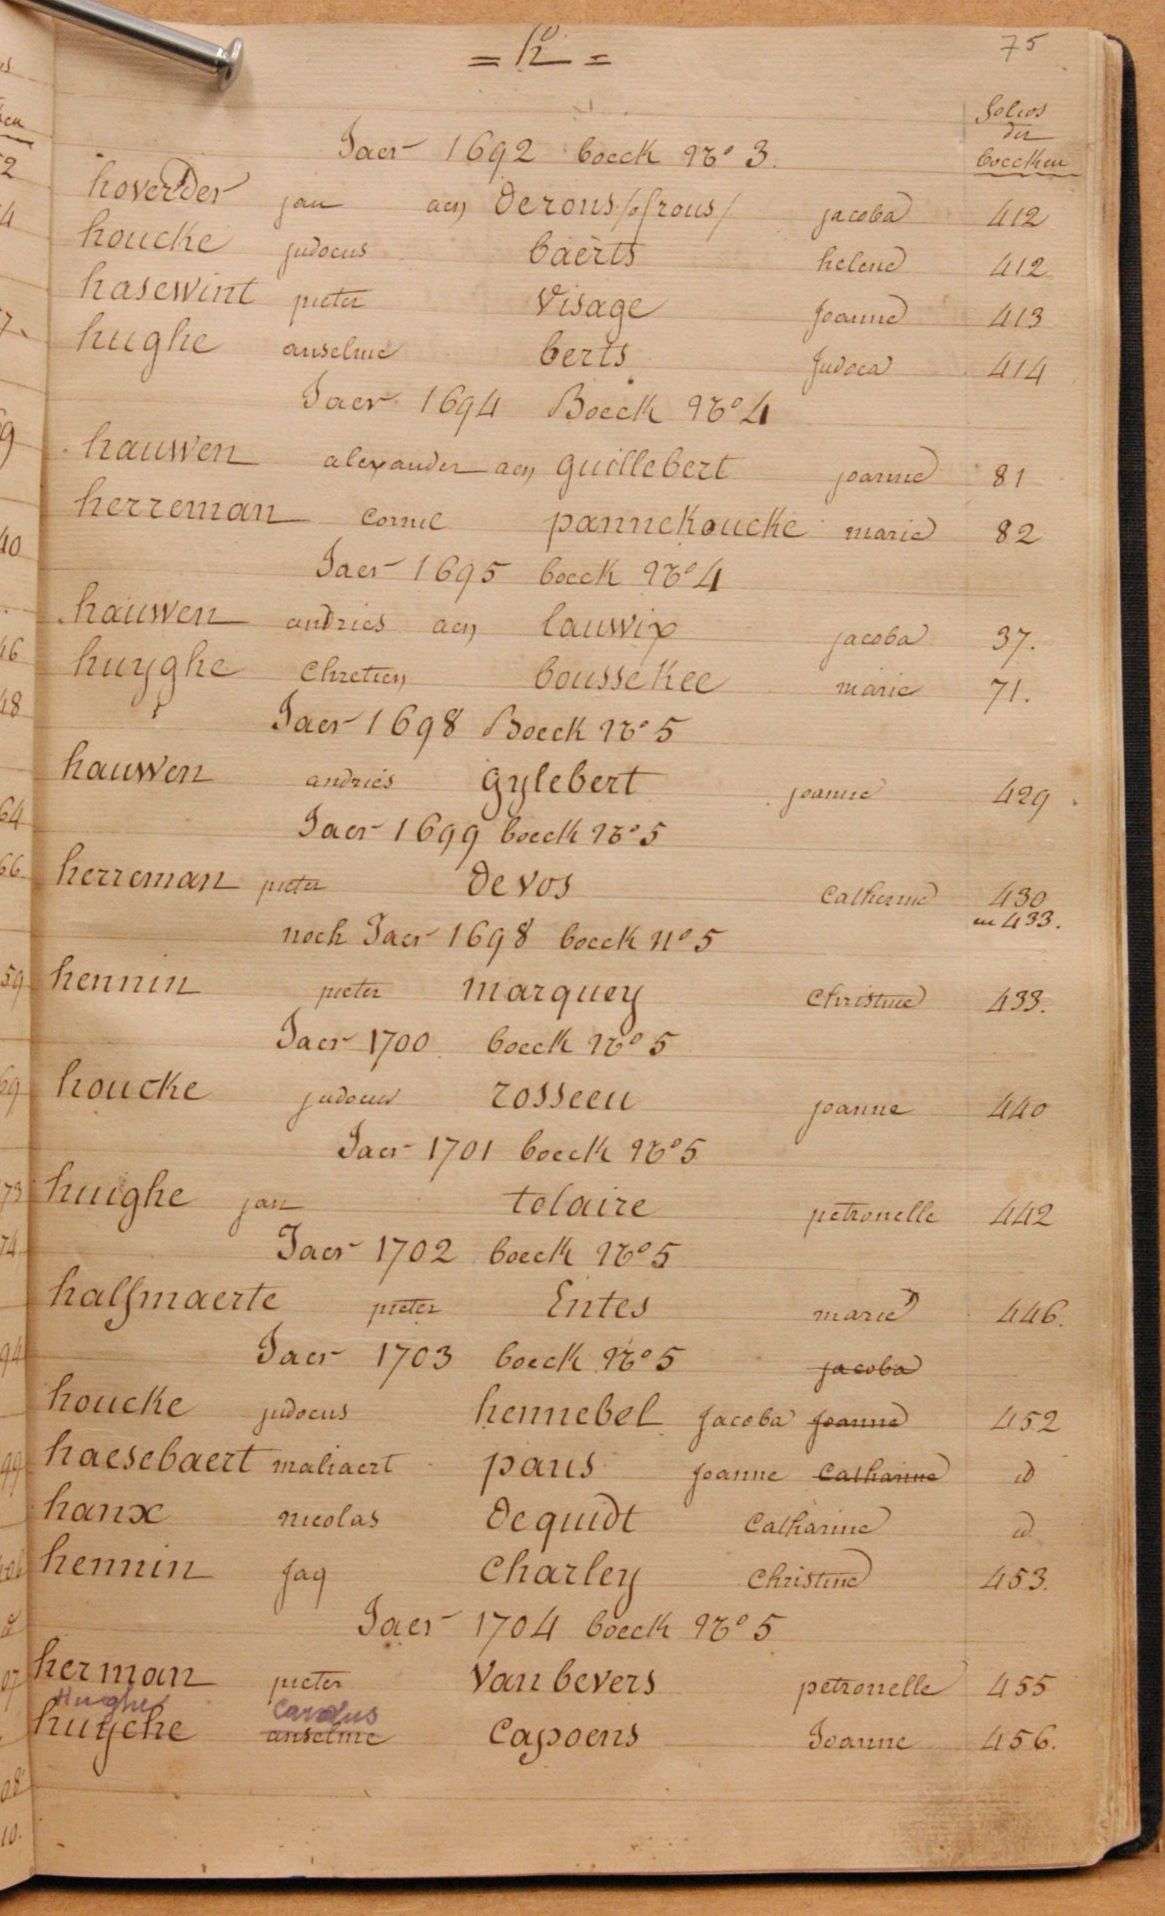 = h =
75
folios
der
boecken
Jaer 1692 boeck No 3.
hoverder jan aen derons /of rous/ jacoba 412
houcke judocus baërts helene 412
hasewint pieter Visage Joanne 413
hughe anselme berts Judoca 414
Jaer 1694 Boeck No 4
hauwen alexander aen guillebert joanne 81
herreman corneil pannekoucke marie 82
Jaer 1695 boeck No 4
hauwen andries aen lauwix jacoba 37.
huyghe chretien boussekee marie 71.
Jaer 1698 Boeck No 5
hauwen andries gylebert joanne 429
Jaer 1699 boeck No 5
herreman pieter devos catherine 430
en 433.
noch Jaer 1698 boeck no 5
hennin pieter marquey christine 433.
Jaer 1700 boeck No 5
houcke judocus rosseeu joanne 440
Jaer 1701 boeck No 5
huighe jan telaire petronelle 442
Jaer 1702 boeck No 5
halfmaerte pieter Entes marie 446.
Jaer 1703 boeck No 5 jacoba
houcke judocus hennebel Jacoba Joanne 452
haesebaert maliaert paus Joanne Catharine id
hanx nicolas dequidt Catharine id
hennin jaq charley christine 453.
Jaer 1704 boeck No 5
herman pieter Van bevers petronelle 455
Hughe Carolus
huyche anselme capoens Joanne 456.